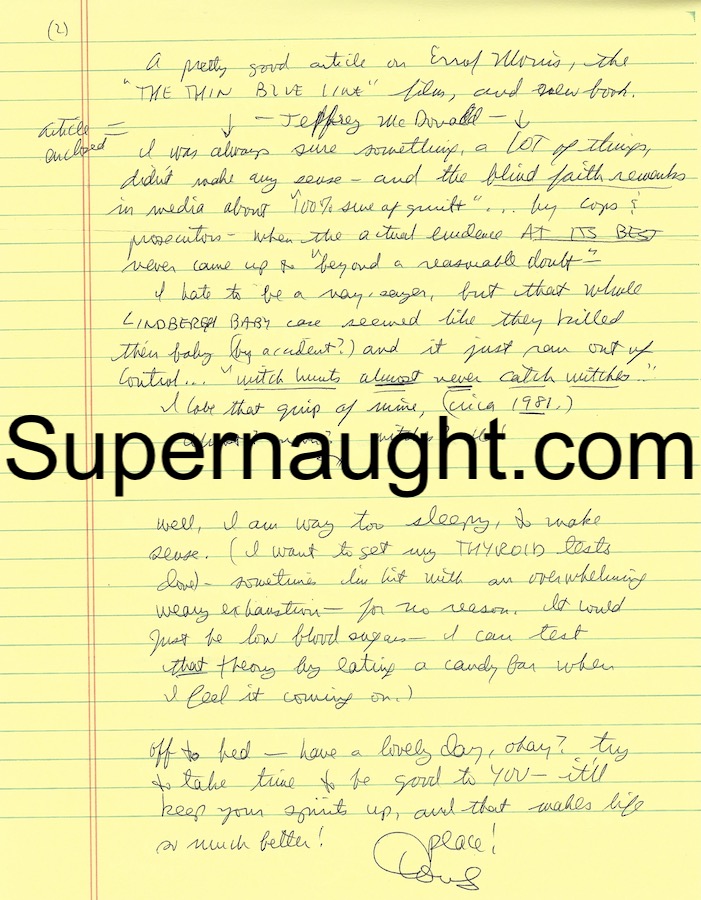 (2)
A pretty good article on Errol Morris, the
"THE THIN BLUE LINE" film, and new book.
article enclosed = ↓ - Jeffrey McDonald - ↓
I was always sure something, a LOT of things,
didn't make any sense - and the blind faith remarks
in media about "100% sure of guilt"... by cops &
prosecutors - when the actual evidence AT ITS BEST
never came up to "beyond a reasonable doubt"-
I hate to be a nay-sayer, but that whole
LINDBERGH BABY case seemed like they killed
their baby (by accident?) and it just ran out of
control... "witch hunts almost never catch witches.."
I love that quip of mine, (circa 1981.)
Supernaught.com
well, I am way too sleepy, to make
sense. (I want to get my THYROID tests
done) - sometimes I'm hit with an overwhelming
weary exhaustion - for no reason. It could
just be low blood sugars - I can test
that theory by eating a candy bar when
I feel it coming on.)
off to bed - have a lovely day, okay? try
to take time to be good to YOU - it'll
keep your spirits up, and that makes life
so much better! peace!